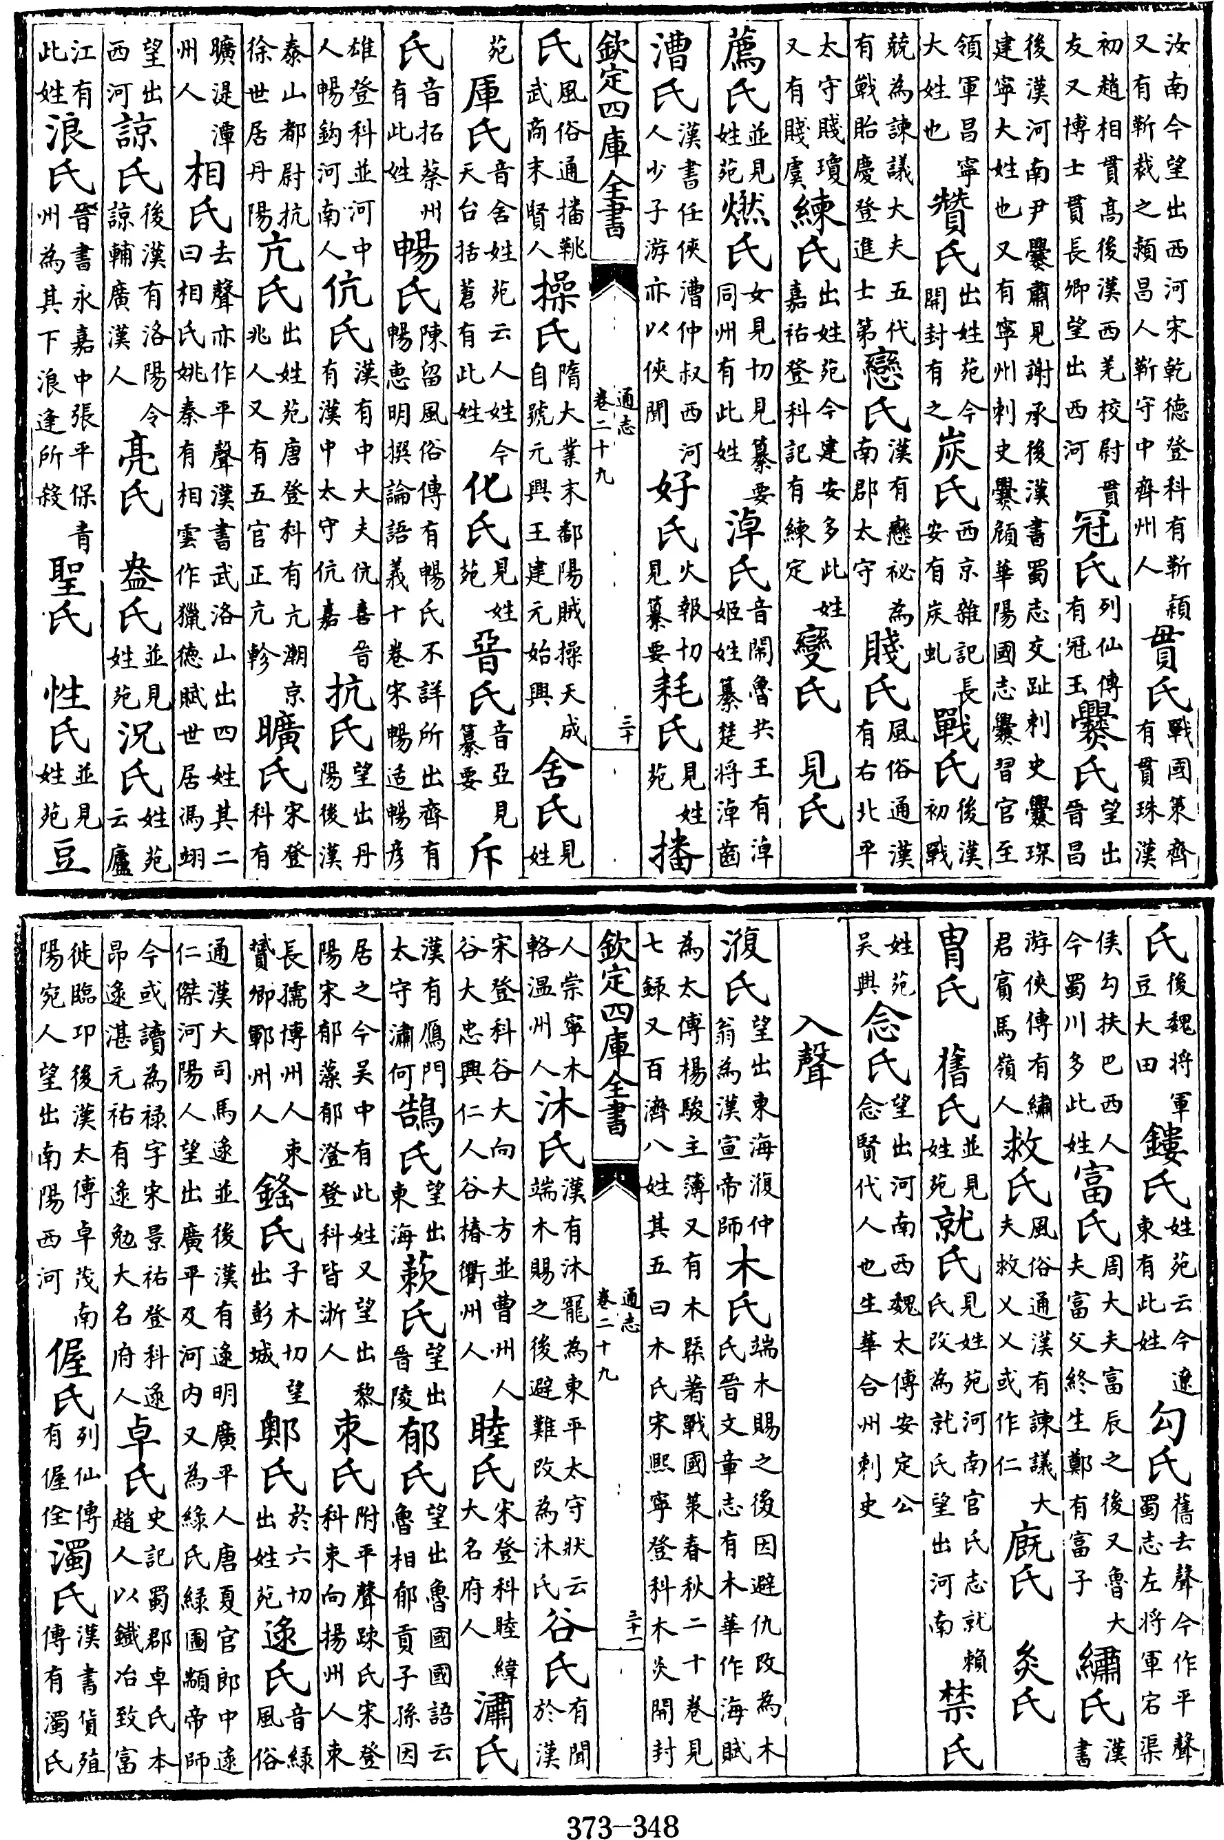 汝南今望出西河宋乾德登科有靳頴又有靳裁之潁昌人靳守中齊州人貫氏戰國策齊有貫珠漢
初趙相貫高後漢西羌校尉貫友又博士貫長卿望出西河冠氏列仙傳有冠玉爨氏望出晉昌
後漢河南尹爨肅見謝承後漢書蜀志交趾刺史爨琛建寧大姓也又有寧州刺史爨頠華陽國志爨習官至
領軍昌寧大姓也贊氏出姓苑今開封有之炭氏西京雜記長安有炭虬戰氏後漢初戰
兢為諫議大夫五代有戰貽慶登進士第戀氏漢有戀祕為南郡太守賤氏風俗通漢有右北平
太守賤瓊又有賤虞練氏出姓苑今建安多此姓嘉祐登科記有練定變氏 見氏
薦氏並見姓苑燃氏女見切見纂要同州有此姓淖氏音閙魯共王有淖姬姓纂楚將淖齒
漕氏漢書任俠漕仲叔西河人少子游亦以俠聞好氏火報切見纂要耗氏見姓苑播
欽定四庫全書 通志卷二十九 三十
氏風俗通播鞉武商末賢人操氏隋大業末鄱陽賊操天成自號元興王建元始興舍氏見姓
苑厙氏音舍姓苑云人姓今天台括蒼有此姓化氏見姓苑晉氏音亞見纂要斥
氏音拓蔡州有此姓暢氏陳留風俗傳有暢氏不詳所出齊有暢惠明撰論語義十卷宋暢适暢彦
雄登科並河中人暢鈞河南人伉氏漢有中大夫伉喜晉有漢中太守伉嘉抗氏望出丹陽後漢
泰山都尉抗徐世居丹陽亢氏出姓苑唐登科有亢潮京兆人又有五官正亢軫曠氏宋登科有
曠湜潭州人相氏去聲亦作平聲漢書武洛山出四姓其二曰相氏姚秦有相雲作獵德賦世居馮翊
望出西河諒氏後漢有洛陽令諒輔廣漢人亮氏 盎氏並見姓苑況氏姓苑云廬
江有此姓浪氏晉書永嘉中張平保青州為其下浪逢所殺聖氏 性氏並見姓苑豆
氏後魏將軍豆大田鏤氏姓苑云今遼東有此姓勾氏舊去聲今作平聲蜀志左將軍宕渠
侯勾扶巴西人今蜀川多此姓富氏周大夫富辰之後又魯大夫富父終生鄭有富子繡氏漢書
游俠傳有繡君賓馬嶺人救氏風俗通漢有諫議大夫救乂乂或作仁廐氏 灸氏
胄氏 舊氏並見姓苑就氏見姓苑河南官氏志就賴氏改為就氏望出河南禁氏
姓苑吳興念氏望出河南西魏太傅安定公念賢代人也生華合州刺史
入聲
澓氏望出東海澓仲翁為漢宣帝師木氏端木賜之後因避仇改為木氏晉文章志有木華作海賦
為太傅楊駿主簿又有木槩著戰國策春秋二十卷見七録又百濟八姓其五曰木氏宋熙寧登科木炎開封
欽定四庫全書 通志卷二十九 三十一
人崇寧木輅溫州人沐氏漢有沐寵為東平太守狀云端木賜之後避難改為沐氏谷氏有聞於漢
宋登科谷大向大方並曹州人谷大忠興仁人谷椿衢州人睦氏宋登科睦緯大名府人潚氏
漢有鴈門太守潚何鵠氏望出東海蔌氏望出晉陵郁氏望出魯國國語云魯相郁貢子孫因
居之今吳中有此姓又望出黎陽宋郁藻郁澄登科皆浙人束氏附平聲疎氏宋登科束向揚州人束
長孺博州人束贄卿鄆州人鍫氏子木切望出彭城鄓氏於六切出姓苑逯氏音綠風俗
通漢大司馬逯並後漢有逯明廣平人唐夏官郎中逯仁傑河陽人望出廣平及河內又為綠氏綠圖顓帝師
今或讀為祿字宋景祐登科逯昂逯湛元祐有逯勉大名府人卓氏史記蜀郡卓氏本趙人以鐵冶致富
徙臨卭後漢太傅卓茂南陽宛人望出南陽西河偓氏列仙傳有偓佺濁氏漢書貨殖傳有濁氏
373-348